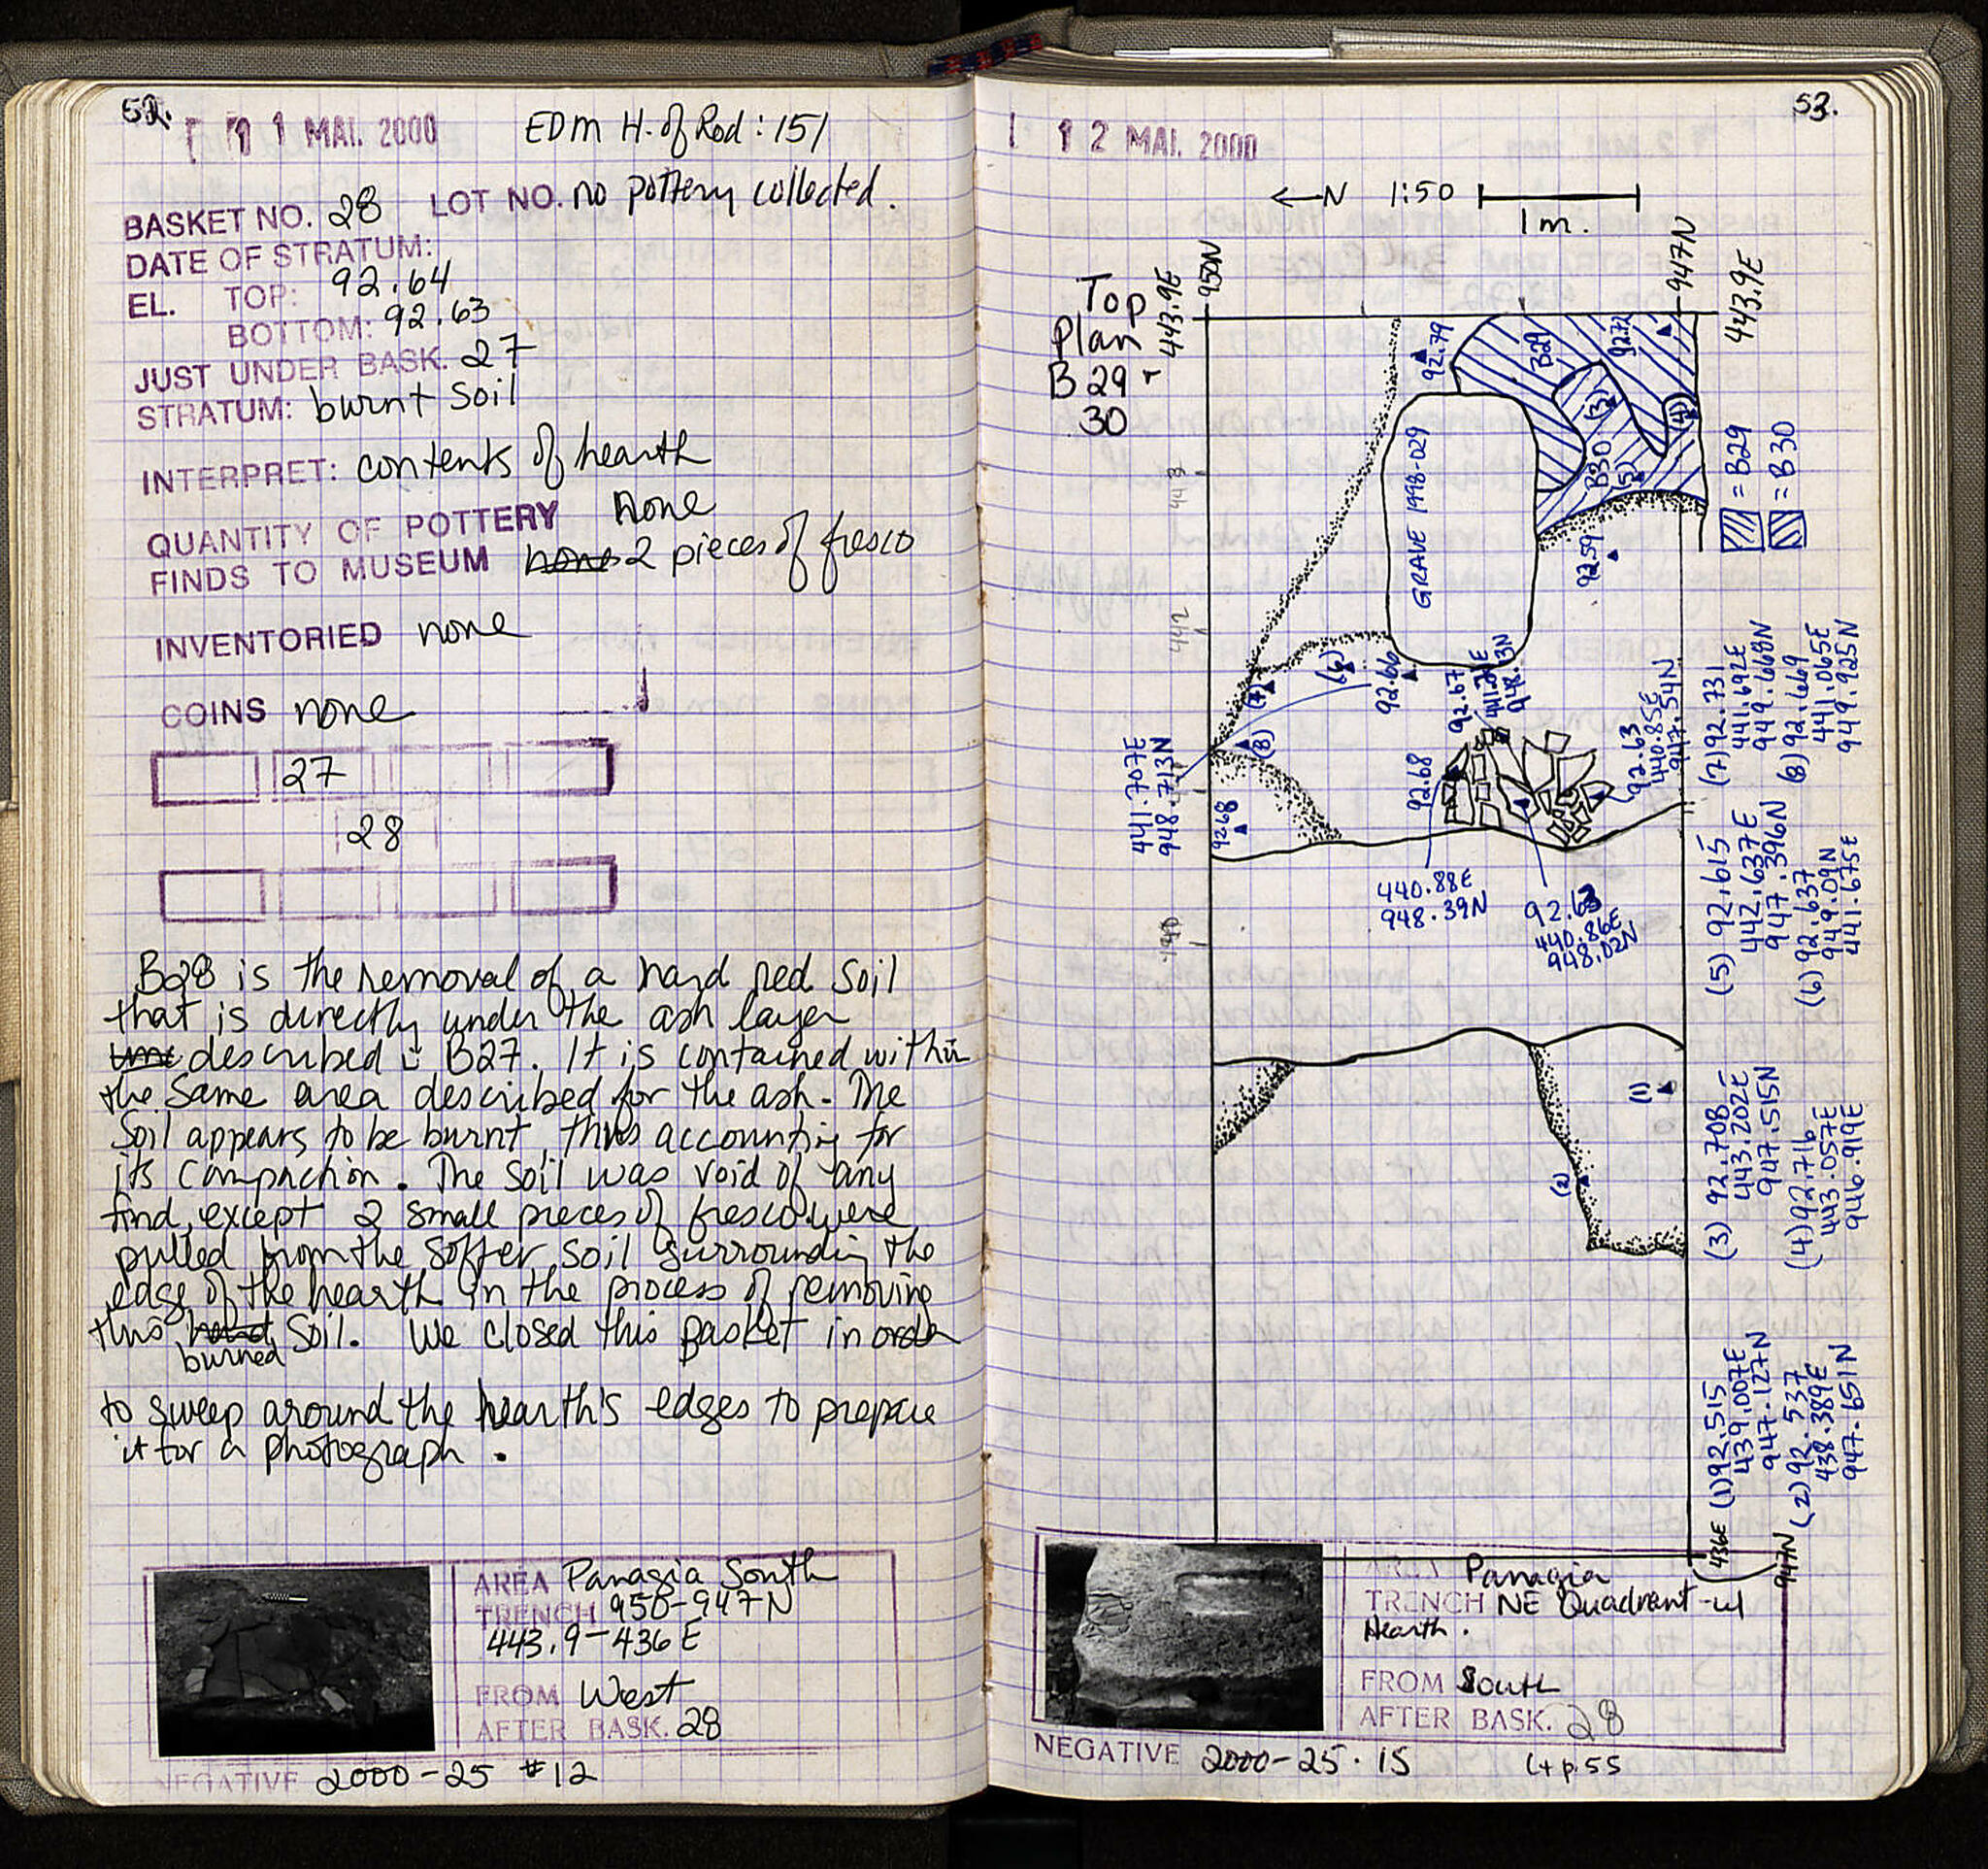 52.
11 MAI. 2000
EDM H. of Rod: 151
BASKET NO. 28 LOT NO. no pottery collected.
DATE OF STRATUM:
EL. TOP: 92.64
BOTTOM: 92.63
JUST UNDER BASK. 27
STRATUM: burnt soil
INTERPRET: contents of hearth
QUANTITY OF POTTERY none
FINDS TO MUSEUM none 2 pieces of fresco
INVENTORIED none
COINS none
27
28
B28 is the removal of a hard red soil
that is directly under the ash layer
described in B27. It is contained within
the same area described for the ash. The
soil appears to be burnt, thus accounting for
its compaction. The soil was void of any
find, except 2 small pieces of fresco were
pulled from the softer soil surrounding the
edge of the hearth in the process of removing
this hard soil. We closed this basket in order
burned
to sweep around the hearth's edges to prepare
it for a photograph.
AREA Panagia South
TRENCH 950-947N
443.9-436E
FROM West
AFTER BASK. 28
NEGATIVE 2000-25 #12
53.
12 MAI. 2000
←N 1:50
1m.
Top
Plan
B29-
30
443.9E
950N
947N
443.9E
92.79
B29
92.72
(3)
(4)
B30
(5)
GRAVE 1998-029
92.59
= B29
= B30
443
442
(6)
(7)
92.66
(8)
92.67
92.68
441.707E
948.713N
92.68
92.63
440.85E
947.54N
440.88E
948.39N
92.63
440.86E
948.02N
(1)
(2)
(7) 92.731
441.692E
949.668N
(8) 92.669
441.065E
949.925N
(5) 92.615
442.637E
947.396N
(6) 92.637
949.09N
441.675E
(3) 92.708
443.202E
947.515N
(4) 92.716
443.057E
946.919E
(1) 92.515
439.007E
947.127N
(2) 92.537
438.389E
947.651N
436E
947N
AREA Panagia
TRENCH NE Quadrant - w/
Hearth.
FROM South
AFTER BASK. 28
NEGATIVE 2000-25.15
p.55